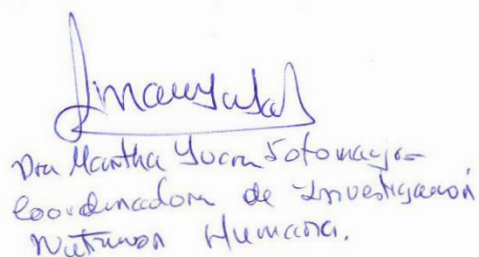 Dra Martha Sotomayor
Coordinadora de Investigación
Nutrición Humana.